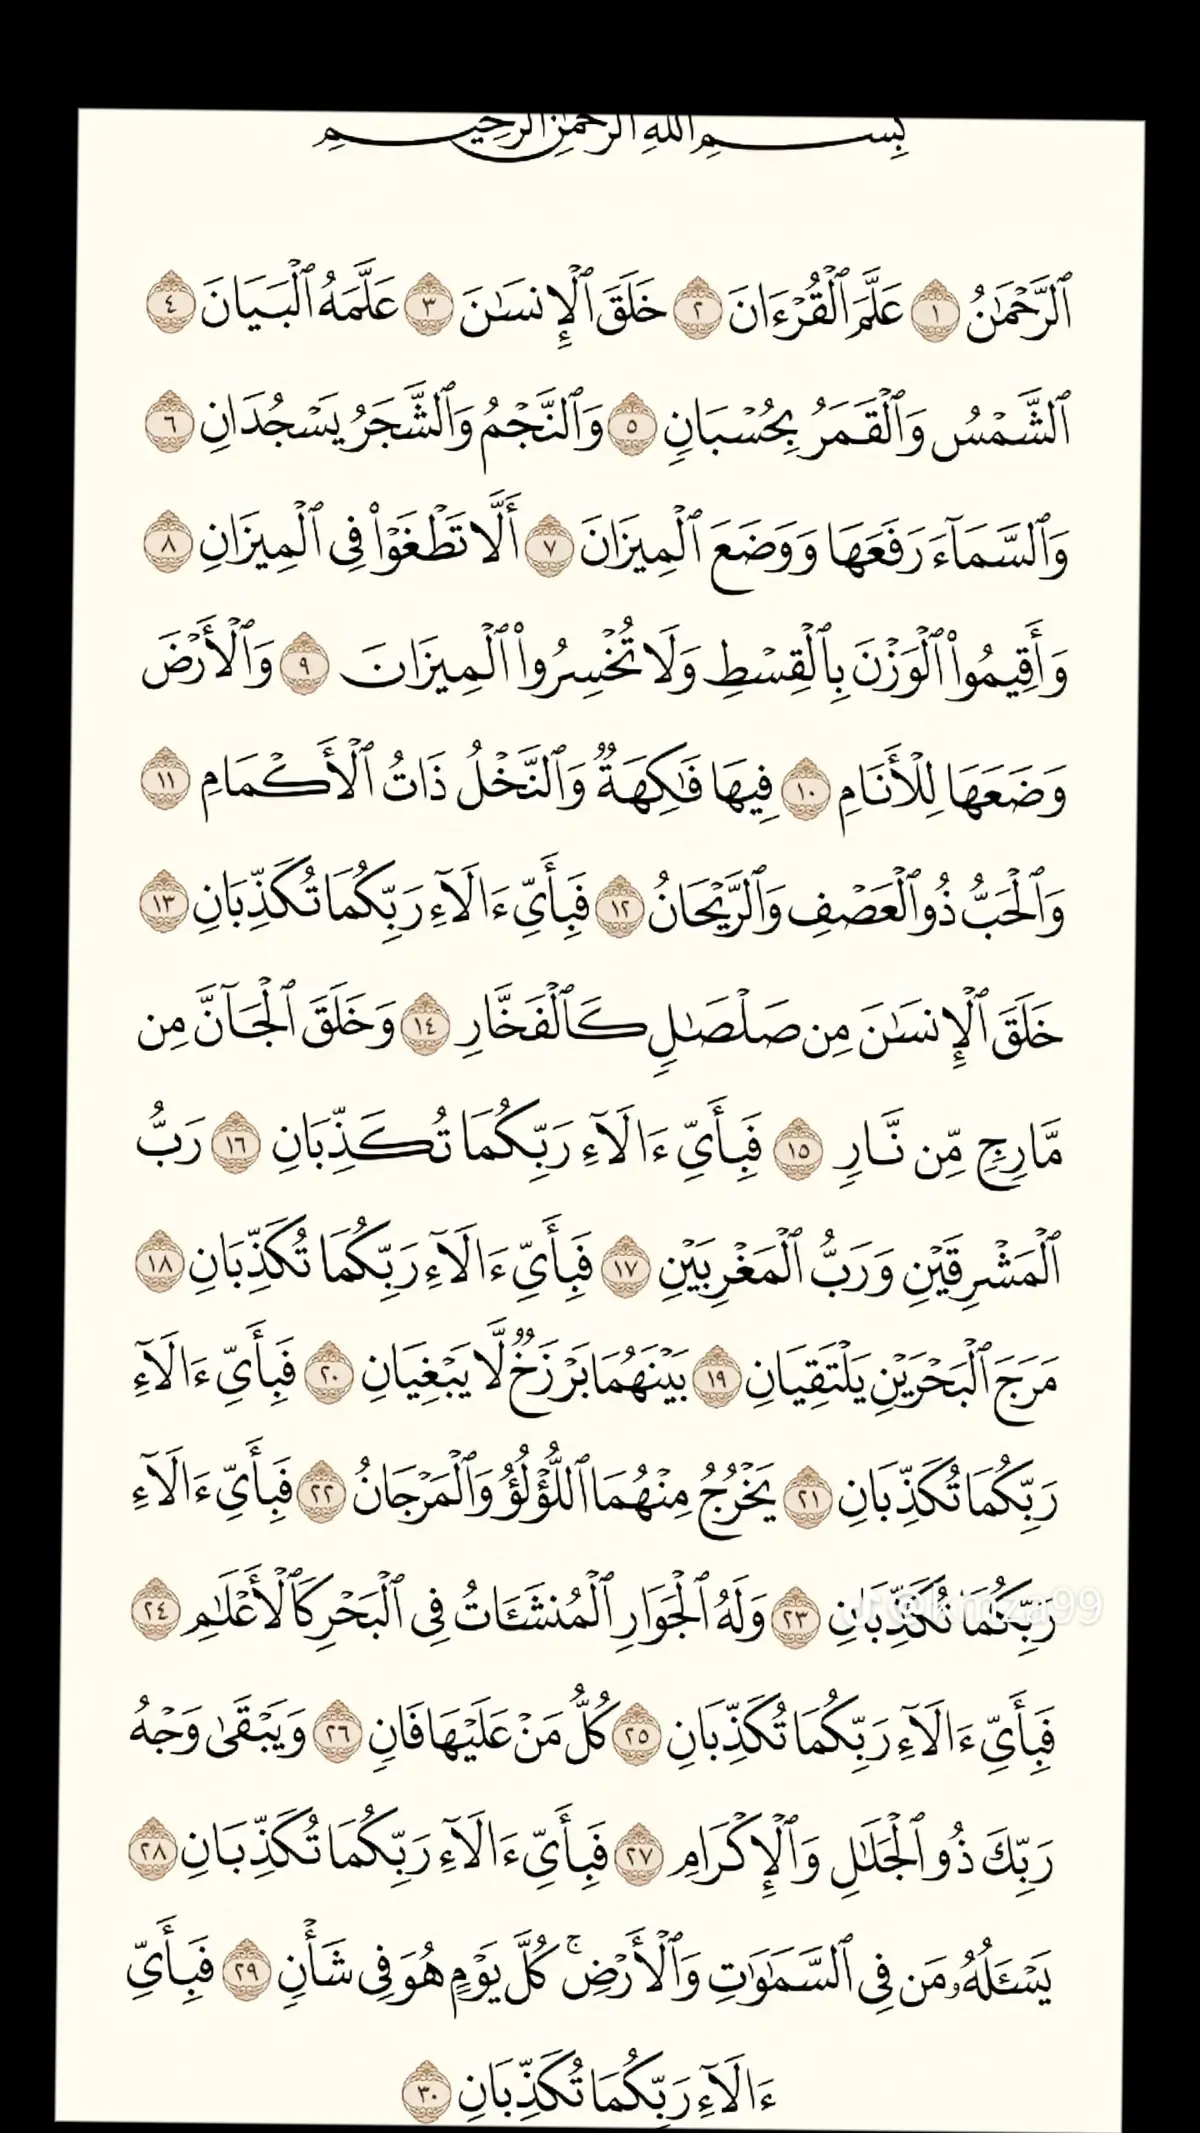 بِسْمِ اللَّهِ الرَّحْمَٰنِ الرَّحِيمِ
ٱلرَّحْمَٰنُ ١ عَلَّمَ ٱلْقُرْءَانَ ٢ خَلَقَ ٱلْإِنسَٰنَ ٣ عَلَّمَهُ ٱلْبَيَانَ ٤
ٱلشَّمْسُ وَٱلْقَمَرُ بِحُسْبَانٍ ٥ وَٱلنَّجْمُ وَٱلشَّجَرُ يَسْجُدَانِ ٦
وَٱلسَّمَآءَ رَفَعَهَا وَوَضَعَ ٱلْمِيزَانَ ٧ أَلَّا تَطْغَوْا۟ فِى ٱلْمِيزَانِ ٨
وَأَقِيمُوا۟ ٱلْوَزْنَ بِٱلْقِسْطِ وَلَا تُخْسِرُوا۟ ٱلْمِيزَانَ ٩ وَٱلْأَرْضَ
وَضَعَهَا لِلْأَنَامِ ١٠ فِيهَا فَٰكِهَةٌ وَٱلنَّخْلُ ذَاتُ ٱلْأَكْمَامِ ١١
وَٱلْحَبُّ ذُو ٱلْعَصْفِ وَٱلرَّيْحَانُ ١٢ فَبِأَىِّ ءَالَآءِ رَبِّكُمَا تُكَذِّبَانِ ١٣
خَلَقَ ٱلْإِنسَٰنَ مِن صَلْصَٰلٍ كَٱلْفَخَّارِ ١٤ وَخَلَقَ ٱلْجَآنَّ مِن
مَّارِجٍ مِّن نَّارٍ ١٥ فَبِأَىِّ ءَالَآءِ رَبِّكُمَا تُكَذِّبَانِ ١٦ رَبُّ
ٱلْمَشْرِقَيْنِ وَرَبُّ ٱلْمَغْرِبَيْنِ ١٧ فَبِأَىِّ ءَالَآءِ رَبِّكُمَا تُكَذِّبَانِ ١٨
مَرَجَ ٱلْبَحْرَيْنِ يَلْتَقِيَانِ ١٩ بَيْنَهُمَا بَرْزَخٌ لَّا يَبْغِيَانِ ٢٠ فَبِأَىِّ ءَالَآءِ
رَبِّكُمَا تُكَذِّبَانِ ٢١ يَخْرُجُ مِنْهُمَا ٱللُّؤْلُؤُ وَٱلْمَرْجَانُ ٢٢ فَبِأَىِّ ءَالَآءِ
رَبِّكُمَا تُكَذِّبَانِ ٢٣ وَلَهُ ٱلْجَوَارِ ٱلْمُنشَـَٔاتُ فِى ٱلْبَحْرِ كَٱلْأَعْلَٰمِ ٢٤
@kmza99
فَبِأَىِّ ءَالَآءِ رَبِّكُمَا تُكَذِّبَانِ ٢٥ كُلُّ مَنْ عَلَيْهَا فَانٍ ٢٦ وَيَبْقَىٰ وَجْهُ
رَبِّكَ ذُو ٱلْجَلَٰلِ وَٱلْإِكْرَامِ ٢٧ فَبِأَىِّ ءَالَآءِ رَبِّكُمَا تُكَذِّبَانِ ٢٨
يَسْـَٔلُهُۥ مَن فِى ٱلسَّمَٰوَٰتِ وَٱلْأَرْضِ ۚ كُلَّ يَوْمٍ هُوَ فِى شَأْنٍ ٢٩ فَبِأَىِّ
ءَالَآءِ رَبِّكُمَا تُكَذِّبَانِ ٣٠